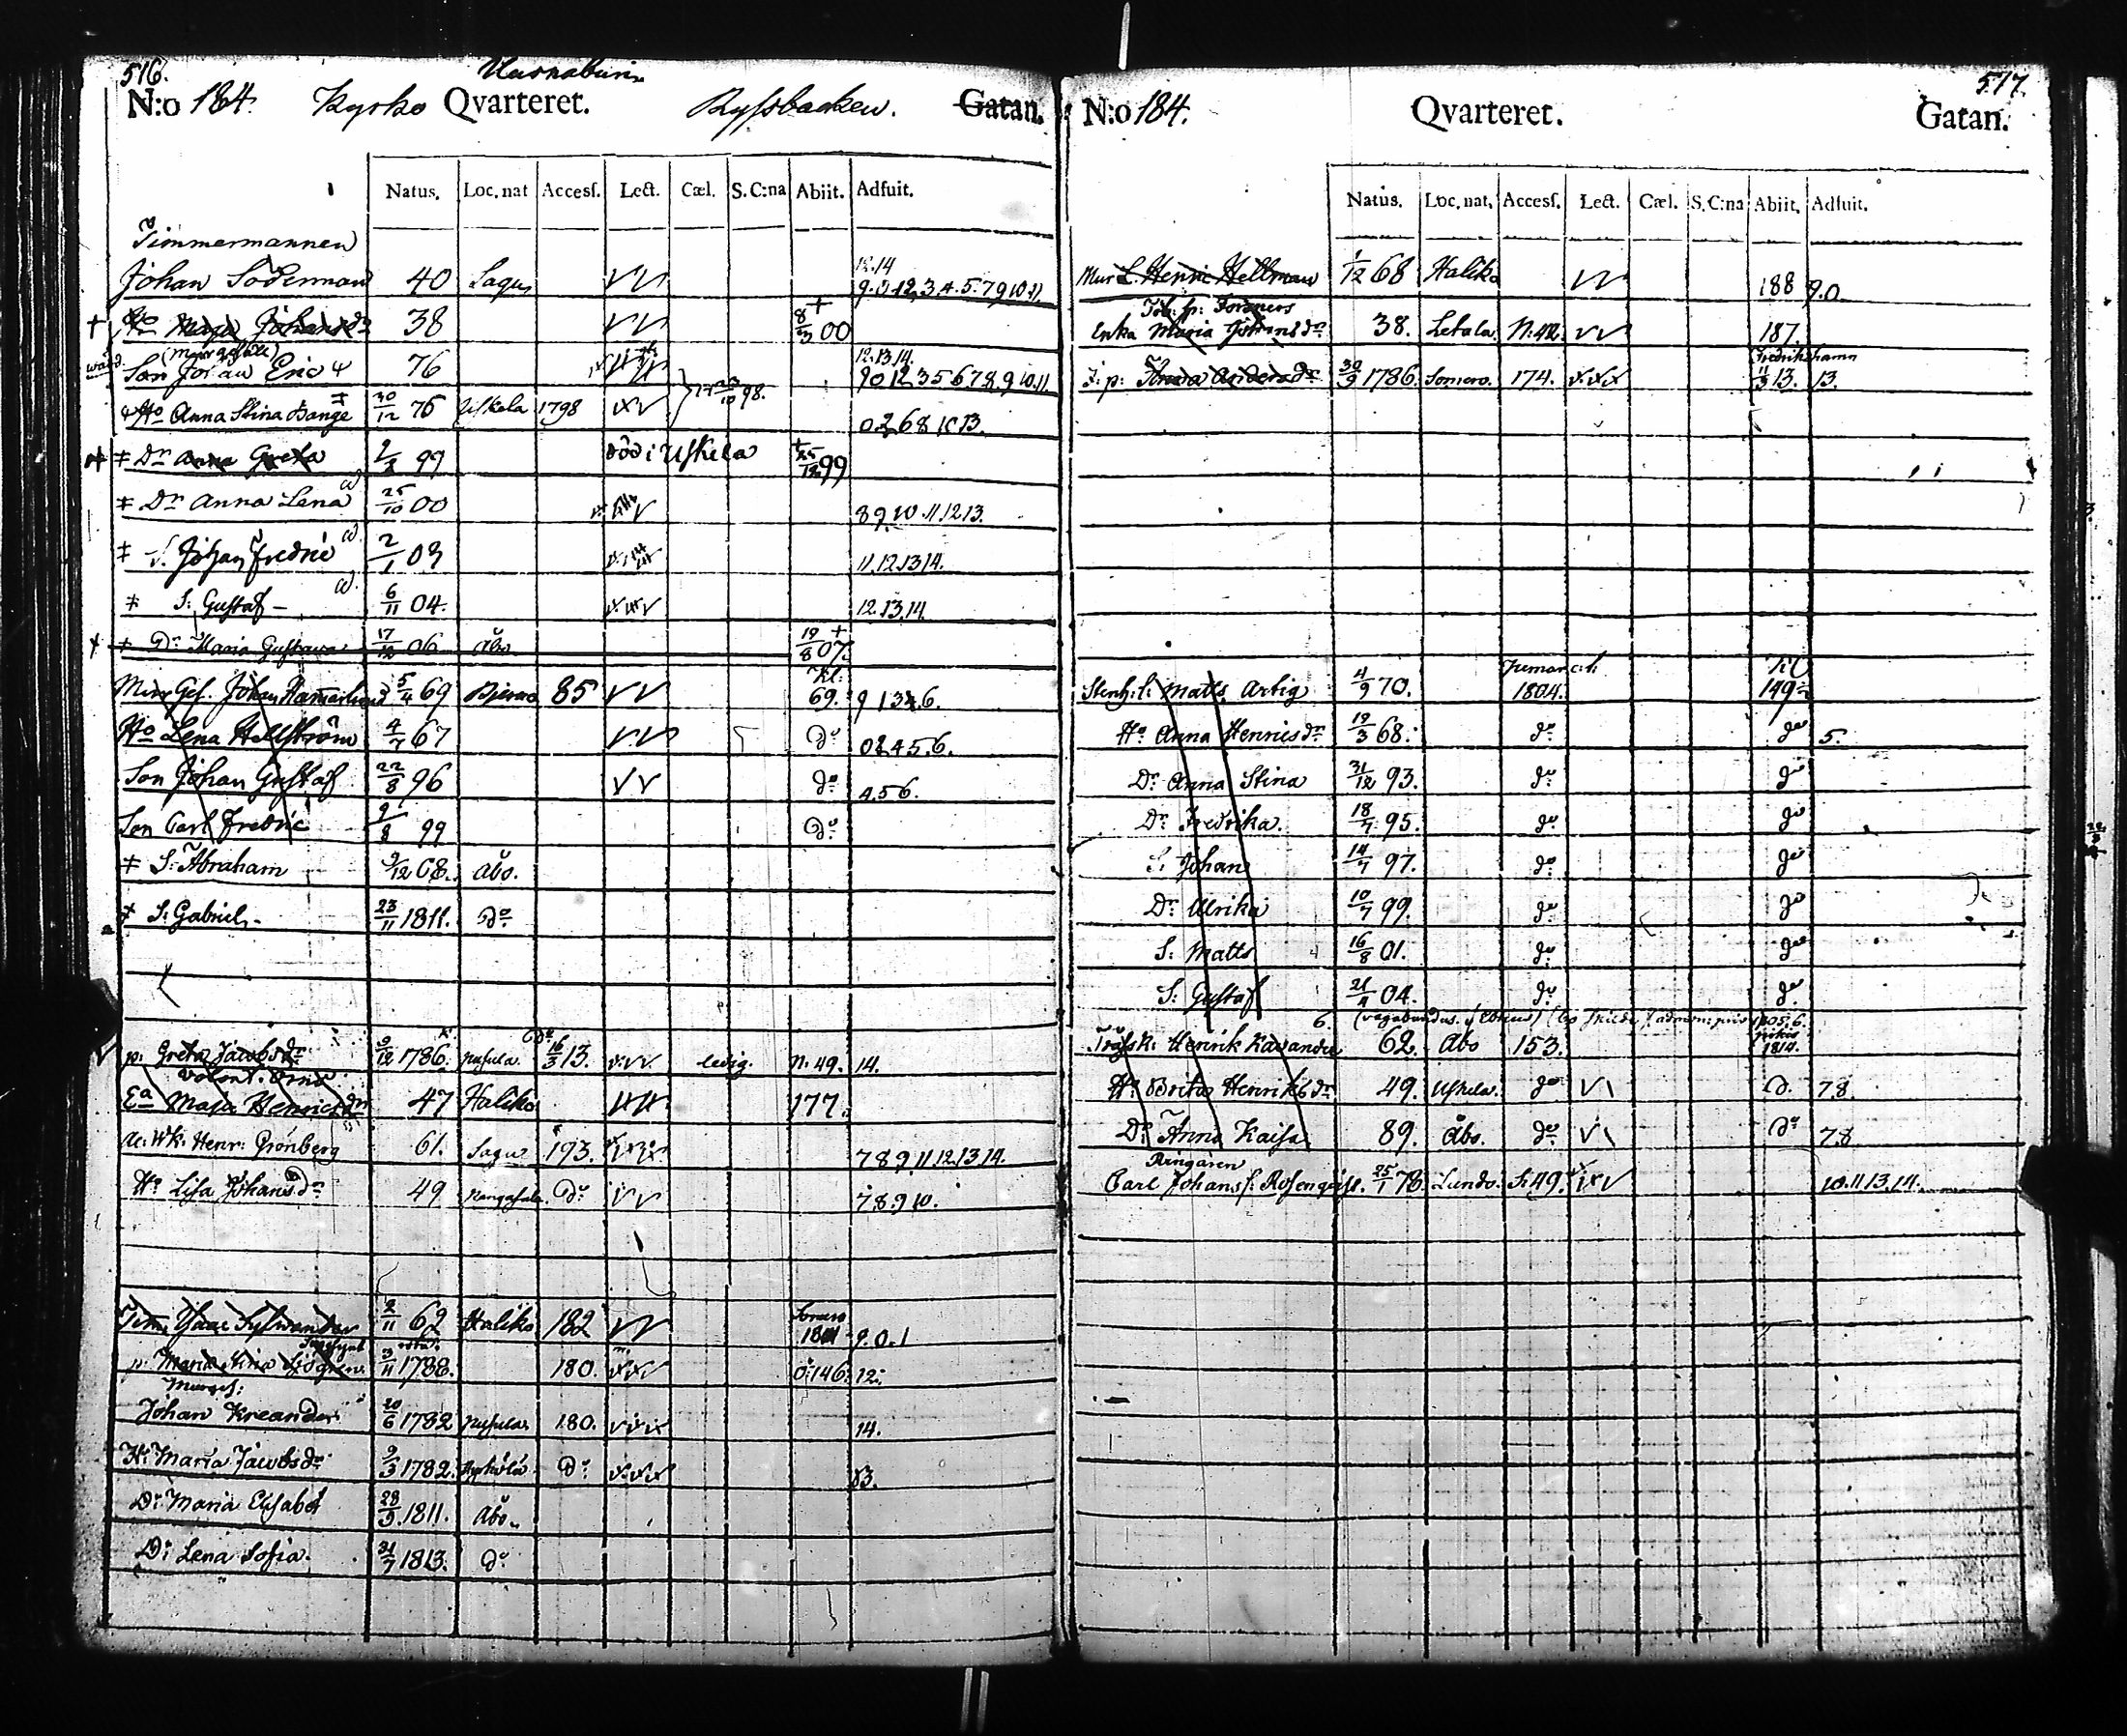 516.
N:o 184. Kyrko Qvarteret. Ryssbacken. Gatan.
Natus. Loc. nat Access. Lect. Cæl. S. C:na Abiit. Adfuit.
Timmermannen
Johan Söderman 40 Sagu 12.14 9.0.12.3.4.5.7.9.10.11.
Ho Maja Johansdr 38 8/3 00
(Murgesäll)
Son Johan Eric 76 12.13.14. 9 0 12 3 5 6 7 8 9 10.11.
Ho Anna Stina Bange 30/12 75 Uskela 1798 98. 0 2 6 8 10 13.
Dr Anna Greta 99 död i Uskela 25/12 99
Dr Anna Lena 25/10 00 8 9. 10 11. 12 13.
S. Johan Fredric 2/1 03 11. 12. 13 14.
S: Gustaf 6/11 04. 12. 13. 14.
Dr Maria Gustava 17/12 06 Åbo 19/8 07.
Mur Ges. Johan Hamarlund 5/4 69 Bjerno 85 Kl: 69. 9 1 3 4 6.
Ho Lena Hellström 4/7 67 do 0 2 4 5 6.
Son Johan Gustaf 22/8 96 do 4 5 6.
Son Carl Fredric 9/8 99 do
S: Abraham 9/12 08. Åbo.
S: Gabriel 23/11 1811. do
p: Greta Jacobsdr 9/12 1786. Pusula do 16/3 13. ledig. n. 49. 14.
Volont. Örns
Ea Maja Henricsdr 47 Haliko 177.
Henr: Grönberg 61. Sagu 193. 7 8 9 11 12. 13 14.
Ho Lisa Johansdr 49 Kangasala do 7. 8. 9 10.
Tim. Isaac Sylvander 2/11 62 Haliko 182 Somero 1801 9. 0. 1
p: Maria Stina Sjögren 3/11 1788. 180. 146. 12.
Murges:
Johan Kreander 20/6 1782 Pusula 180. 14.
H: Maria Jacobsdr 9/3 1782. do 13.
Dr Maria Elisabet 28/5 1811. Åbo.
Dr Lena Sofia. 31/7 1813. do
517.
N:o 184. Qvarteret. Gatan.
Natus. Loc. nat. Access. Lect. Cæl. S. C:na Abiit. Adfuit.
Mur L. Henric Hellman 1/12 68 Haliko 188 9.0
Enka Maria Johansdr 38. Letala N. 42. 187.
Fredrikshamn
J: p: Anna Andersdr 30/9 1786. Somero. 174. 11/3 13. 13.
Stenh: l: Matts Artig 4/9 70. Jumarch. 1804. til 149
Ho Anna Henricsdr 19/3 68. do do 5.
Dr Anna Stina 31/12 93. do do
Dr Fredrika. 18/7 95. do do
S: Johan 14/7 97. do do
Dr Ulrika 10/7 99. do do
S: Matts 16/8 01. do do
S: Gustaf 21/4 04. do do
Henrik Kavander 62. Åbo 153. 1814.
Ho Brita Henriksdr 49. Uskela. do do 7 8.
Dr Anna Kaisa 89. Åbo. do do 7. 8
Ringaren
Carl Johans s: Rosenqvist. 25/1 78. Lundo. S: 49. 10. 11 13. 14.